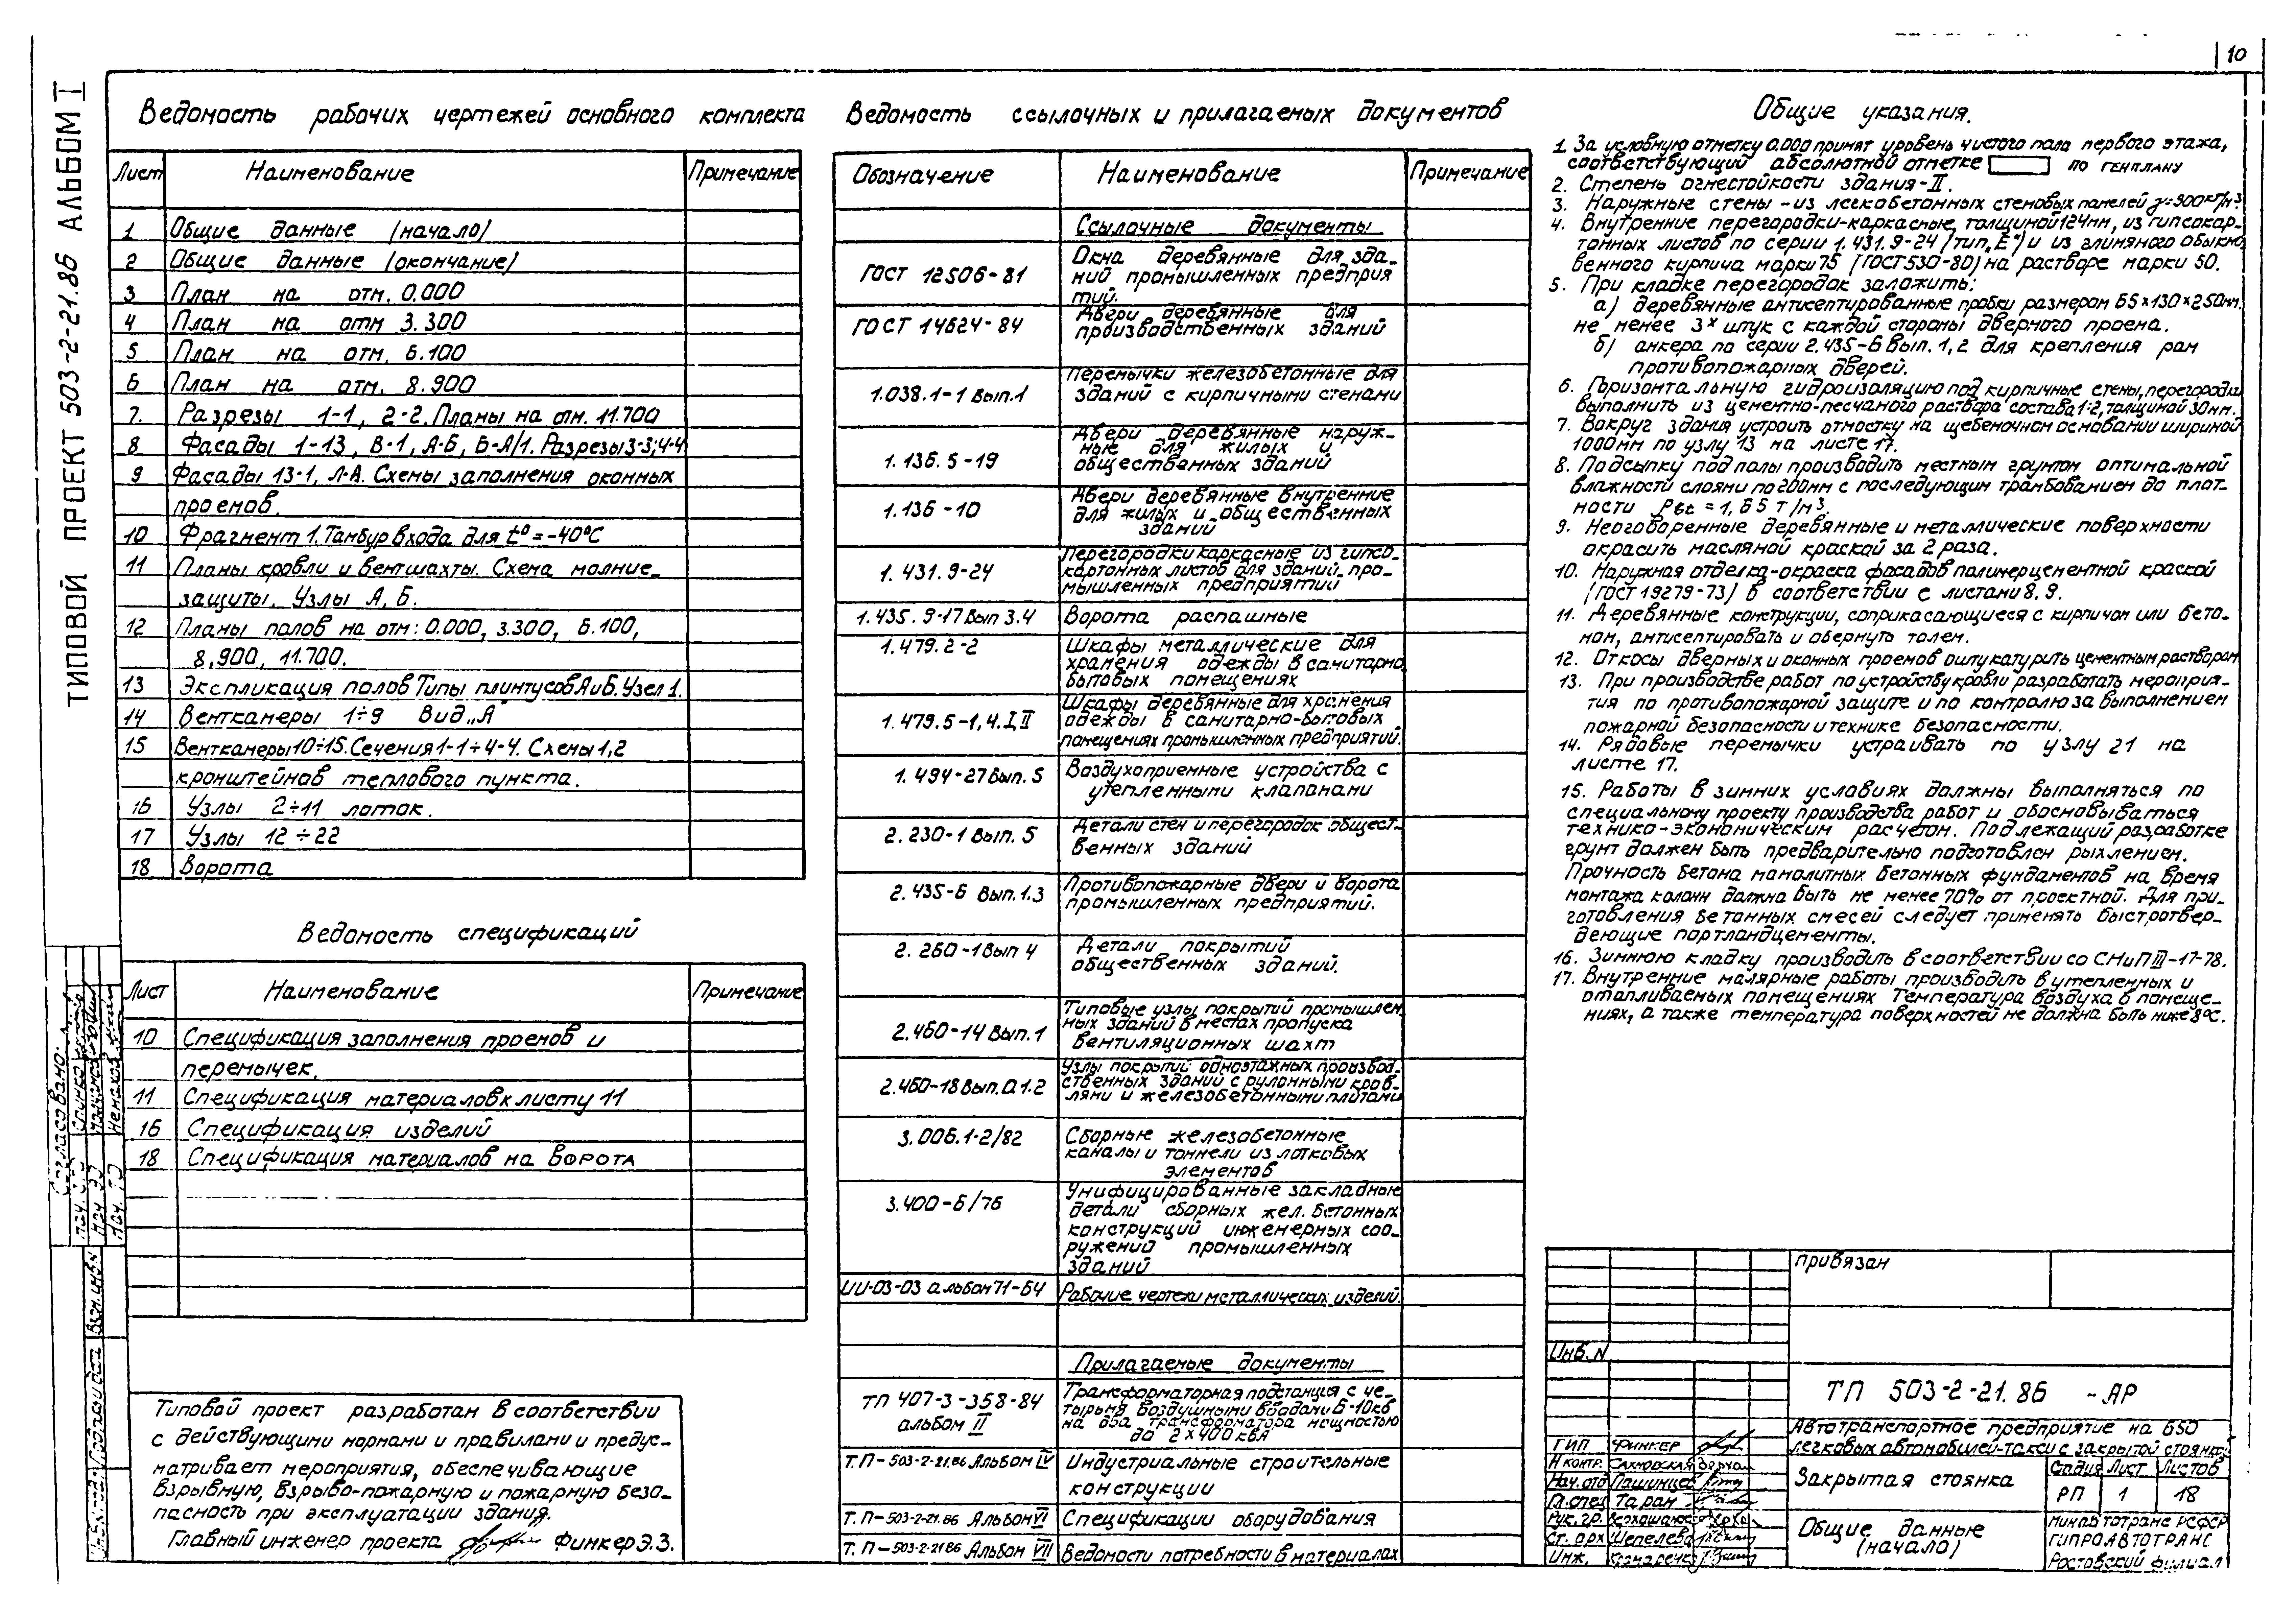 10
ТИПОВОЙ ПРОЕКТ 503-2-21.86 АЛЬБОМ I
Ведомость рабочих чертежей основного комплекта
Лист Наименование Примечание
1 Общие данные (начало)
2 Общие данные (окончание)
3 План на отм. 0.000
4 План на отм 3.300
5 План на отм. 6.100
6 План на отм. 8.900
7. Разрезы 1-1, 2-2. Планы на отм. 11.700
8 Фасады 1-13, В-1, А-Б, Б-А/1. Разрезы 3-3; 4-4
9 Фасады 13-1, Л-А. Схемы заполнения оконных
проемов.
10 Фрагмент 1. Тамбур входа для t° = -40°С
11 Планы кровли и вентшахты. Схема молние-
защиты. Узлы А, Б.
12 Планы полов на отм: 0.000, 3.300, 6.100,
8.900, 11.700.
13 Экспликация полов Типы плинтусов А и Б. Узел 1.
14 Венткамеры 1÷9 Вид „А
15 Венткамеры 10÷15. Сечения 1-1÷4-4. Схемы 1,2
кронштейнов теплового пункта.
16 Узлы 2÷11 лоток.
17 Узлы 12÷22
18 Ворота
Ведомость спецификаций
Лист Наименование Примечание
10 Спецификация заполнения проемов и
перемычек.
11 Спецификация материалов к листу 11
16 Спецификация изделий
18 Спецификация материалов на ворота
Типовой проект разработан в соответствии
с действующими нормами и правилами и предус-
матривает мероприятия, обеспечивающие
взрывную, взрыво-пожарную и пожарную безо-
пасность при эксплуатации здания.
Главный инженер проекта Финкер Э.З.
Ведомость ссылочных и прилагаемых документов
Обозначение Наименование Примечание
Ссылочные документы
ГОСТ 12506-81 Окна деревянные для зда-
ний промышленных предприя
тий.
ГОСТ 14624-84 Двери деревянные для
производственных зданий
1.038.1-1 Вып.1 Перемычки железобетонные для
зданий с кирпичными стенами
1.136.5-19 Двери деревянные наруж-
ные для жилых и
общественных зданий
1.136-10 Двери деревянные внутренние
для жилых и общественных
зданий
1.431.9-24 Перегородки каркасные из гипсо-
картонных листов для зданий про-
мышленных предприятий
1.435.9-17 Вып 3.4 Ворота распашные
1.479.2-2 Шкафы металлические для
хранения одежды в санитарно
бытовых помещениях
1.479.5-1, 4. I, II Шкафы деревянные для хранения
одежды в санитарно-бытовых
помещениях промышленных предприятий.
1.494-27 Вып. 5 Воздухоприемные устройства с
утепленными клапанами
2.230-1 Вып. 5 Детали стен и перегородок общест-
венных зданий
2.435-6 Вып. 1.3 Противопожарные двери и ворота
промышленных предприятий.
2.260-1 Вып 4 Детали покрытий
общественных зданий.
2.460-14 Вып. 1 Типовые узлы покрытий промышлен
ных зданий в местах пропуска
вентиляционных шахт
2.460-18 Вып. 0.1.2 Узлы покрытий одноэтажных производ-
ственных зданий с рулонными кров-
лями и железобетонными плитами
3.006.1-2/82 Сборные железобетонные
каналы и тоннели из лотковых
элементов
3.400-6/76 Унифицированные закладные
детали сборных жел. бетонных
конструкций инженерных соо-
ружений промышленных
зданий
ИИ-03-03 альбом 71-64 Рабочие чертежи металлических изделий.
Прилагаемые документы
ТП 407-3-358-84 Трансформаторная подстанция с че-
тырьмя воздушными вводами 6-10кв
альбом II на два трансформатора мощностью
до 2×400 ква
Т.П-503-2-21.86 Альбом IV Индустриальные строительные
конструкции
Т. П-503-2-21.86 Альбом VI Спецификации оборудования
Т. П-503-2-2186 Альбом VII Ведомости потребности в материалах
Общие указания.
1. За условную отметку 0.000 принят уровень чистого пола первого этажа,
соответствующий абсолютной отметке по генплану
2. Степень огнестойкости здания-II.
3. Наружные стены - из легкобетонных стеновых панелей γ=900кг/м³
4. Внутренние перегородки-каркасные, толщиной 124мм, из гипсокар-
тонных листов по серии 1.431.9-24 (тип „Е") и из глиняного обыкно
венного кирпича марки 75 (ГОСТ 530-80) на растворе марки 50.
5. При кладке перегородок заложить:
а) деревянные антисептированные пробки размером 65×130×250мм.
не менее 3х штук с каждой стороны дверного проема.
б) анкера по серии 2.435-6 вып. 1,2 для крепления рам
противопожарных дверей.
6. Горизонтальную гидроизоляцию под кирпичные стены, перегородки
выполнить из цементно-песчаного раствора состава 1:2, толщиной 30мм.
7. Вокруг здания устроить отмостку на щебеночном основании шириной
1000мм по узлу 13 на листе 17.
8. Подсыпку под полы производить местным грунтом оптимальной
влажности слоями по 200мм с последующим трамбованием до плот-
ности = 1,65 т/м³.
9. Неоговоренные деревянные и металлические поверхности
окрасить масляной краской за 2 раза.
10. Наружная отделка-окраска фасадов полимерцементной краской
(ГОСТ 19279-73) в соответствии с листами 8, 9.
11. Деревянные конструкции, соприкасающиеся с кирпичом или бето-
ном, антисептировать и обернуть толем.
12. Откосы дверных и оконных проемов оштукатурить цементным раствором
13. При производстве работ по устройству кровли разработать мероприя-
тия по противопожарной защите и по контролю за выполнением
пожарной безопасности и технике безопасности.
14. Рядовые перемычки устраивать по узлу 21 на
листе 17.
15. Работы в зимних условиях должны выполняться по
специальному проекту производства работ и обосновываться
технико-экономическим расчетом. Подлежащий разработке
грунт должен быть предварительно подготовлен рыхлением.
Прочность бетона монолитных бетонных фундаментов на время
монтажа колонн должна быть не менее 70% от проектной. Для при-
готовления бетонных смесей следует применять быстротвер-
деющие портландцементы.
16. Зимнюю кладку производить в соответствии со СНиП III-17-78.
17. Внутренние малярные работы производить в утепленных и
отапливаемых помещениях Температура воздуха в помеще-
ниях, а также температура поверхностей не должна быть ниже 8°С.
привязан
Инв. N
ТП 503-2-21.86 -АР
Автотранспортное предприятие на 650
легковых автомобилей-такси с закрытой стоянкой
ГИП Финкер
Н контр. Сахновская
Нач. отд Пашинцев
Гл. спец Таран
Рук. гр.
Ст. арх Шепелева
Инж.
Закрытая стоянка
Стадия Лист Листов
РП 1 18
Общие данные
(начало)
Минавтотранс РСФСР
ГИПРОАВТОТРАНС
Ростовский филиал
Согласовано:
Взам. инв. N